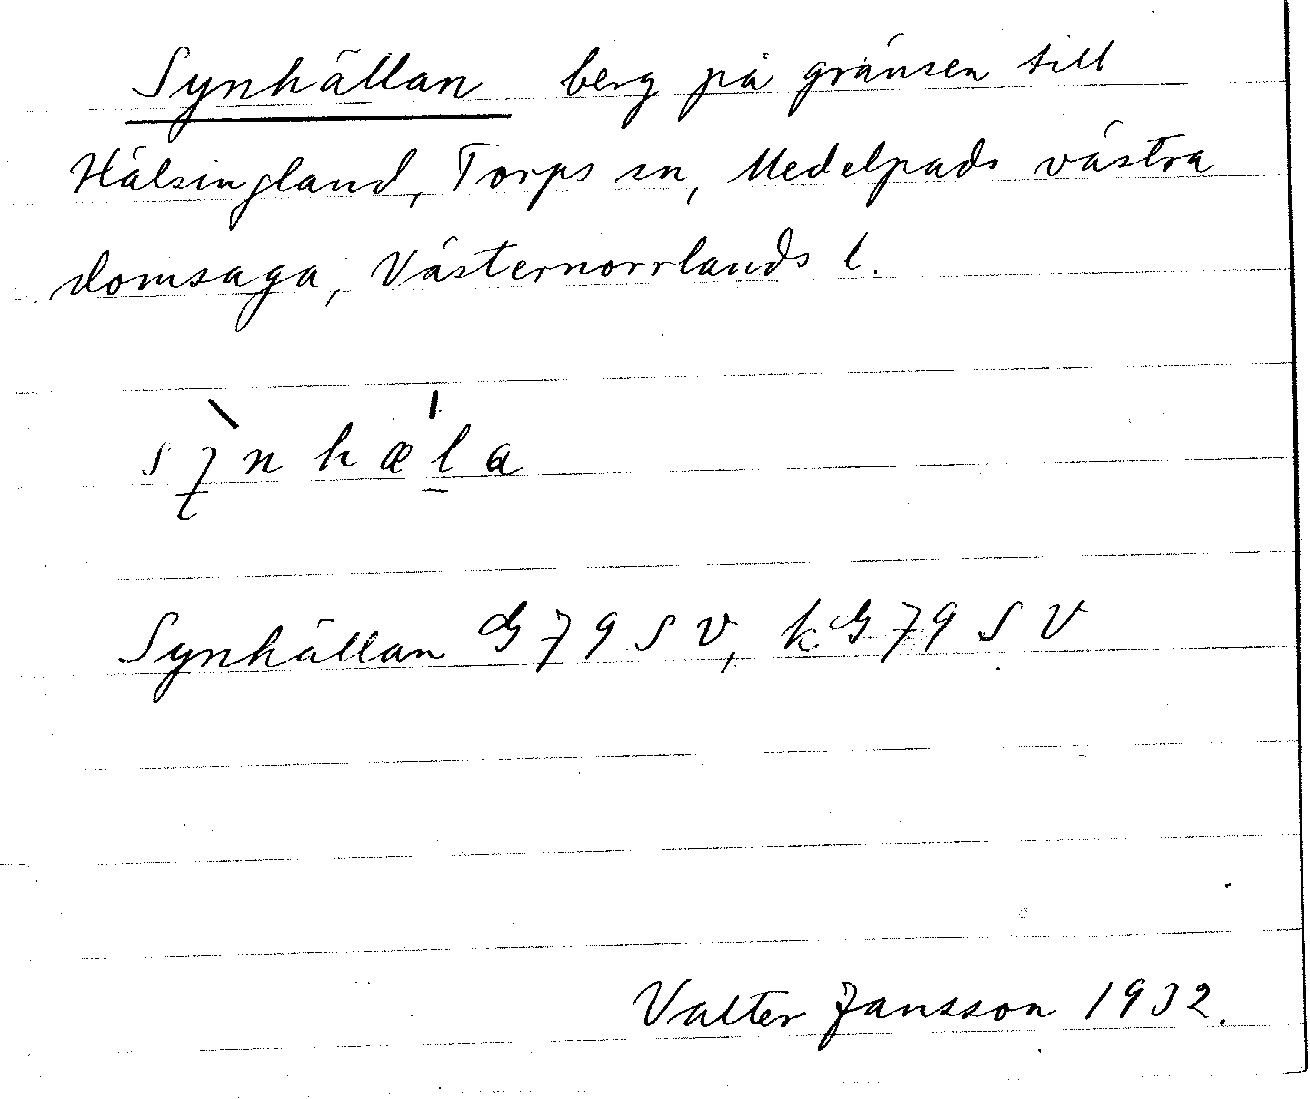 Synhällan berg på gränsen till
Hälsingland, Torps sn, Medelpads västra
domsaga, Västernorrlands l.
sỳnhæ̍la
Synhällan G 79 SV, kG 79 SV
Valter Jansson 1932.